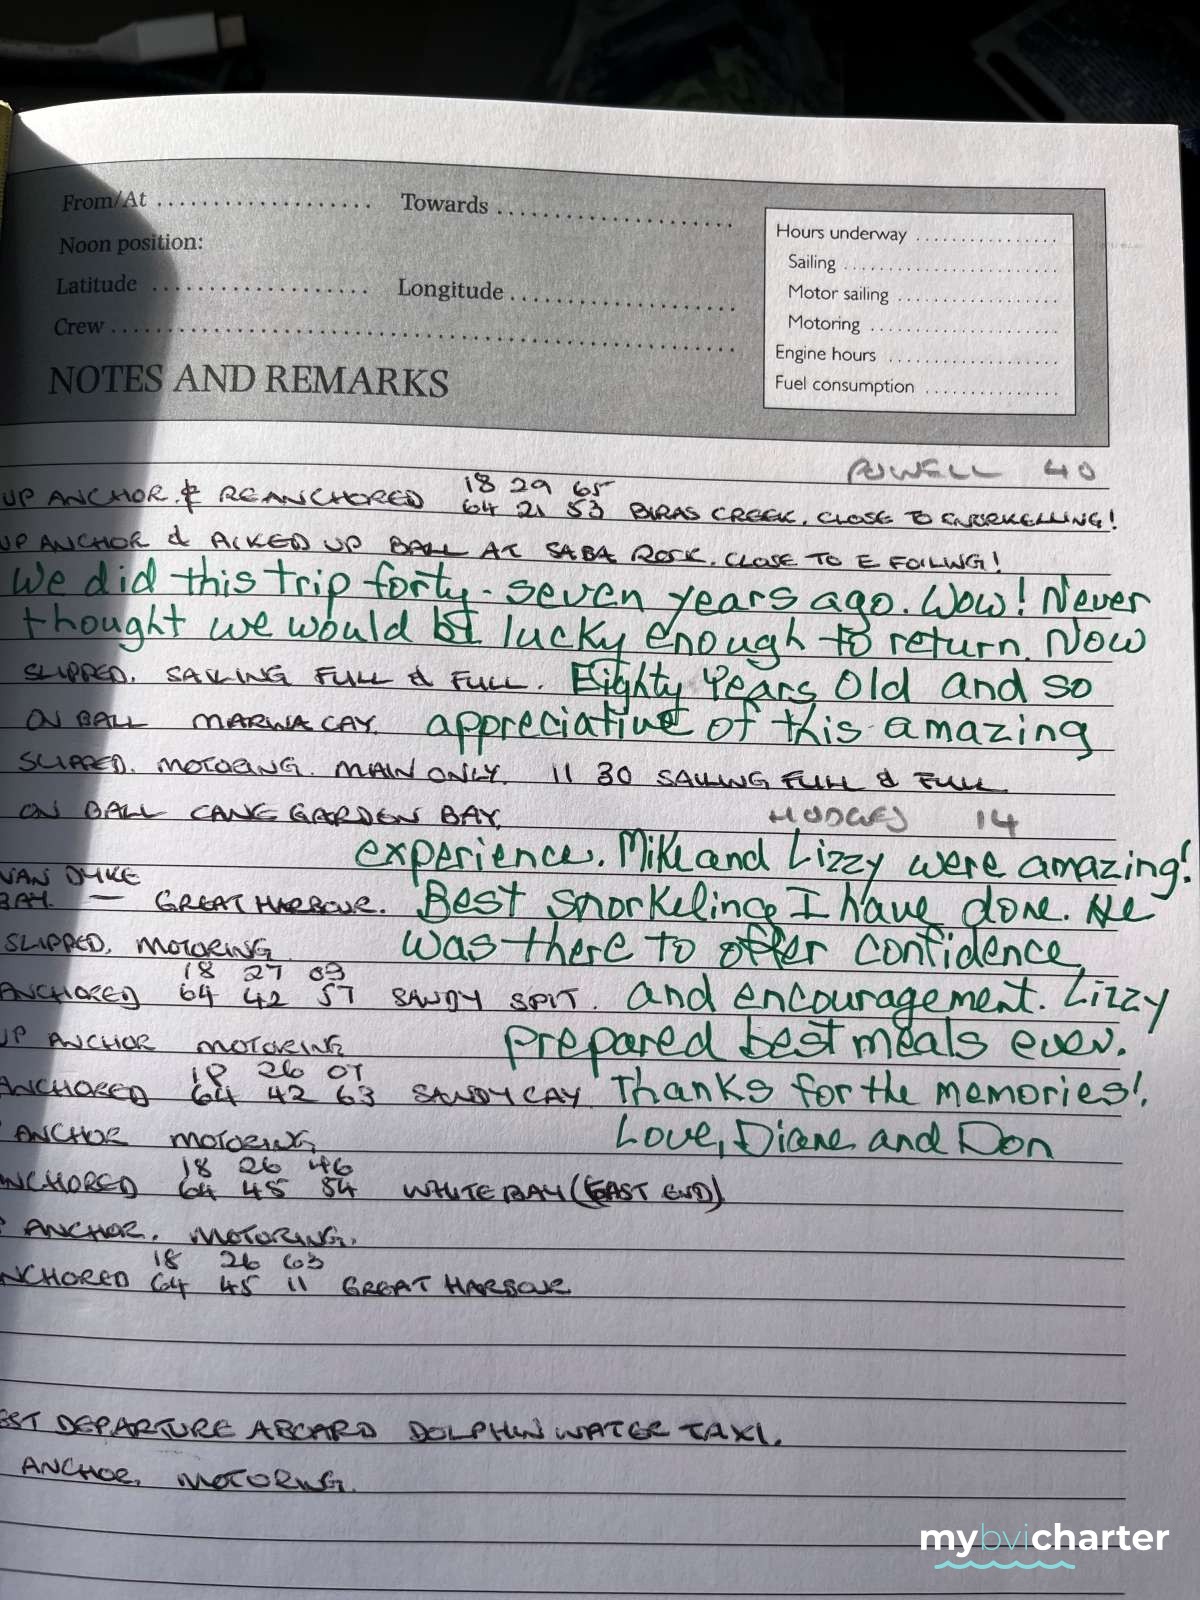 From/At .................... Towards ......................
Noon position:
Latitude .................... Longitude ......................
Crew ............................................................
NOTES AND REMARKS
Hours underway ................
Sailing ........................
Motor sailing ..................
Motoring .....................
Engine hours .................
Fuel consumption .............
POWELL 40
18 29 65
UP ANCHOR & REANCHORED 64 21 53 BIRAS CREEK. CLOSE TO SNORKELLING!
UP ANCHOR & PICKED UP BALL AT SABA ROCK. CLOSE TO E FOILING!
We did this trip forty-seven years ago. Wow! Never
thought we would be lucky enough to return. Now
SLIPPED. SAILING FULL & FULL. Eighty Years Old and so
ON BALL MARINA CAY. appreciative of this amazing
SLIPPED. MOTORING. MAIN ONLY. 11 30 SAILING FULL & FULL
ON BALL CANE GARDEN BAY. HODGES 14
experience. Mike and Lizzy were amazing!
VAN DYKE
BAY. — GREAT HARBOUR. Best snorkeling I have done. He
SLIPPED. MOTORING was there to offer confidence
18 27 03
ANCHORED 64 42 57 SANDY SPIT. and encouragement. Lizzy
UP ANCHOR MOTORING prepared best meals ever.
18 26 07
ANCHORED 64 42 63 SANDY CAY Thanks for the memories!
ANCHOR MOTORING, Love, Diane and Don
18 26 46
NCHORED 64 45 54 WHITE BAY (EAST END)
ANCHOR. MOTORING.
18 26 63
NCHORED 64 45 11 GREAT HARBOUR
EST DEPARTURE ABOARD DOLPHIN WATER TAXI.
ANCHOR. MOTORING.
mybvicharter